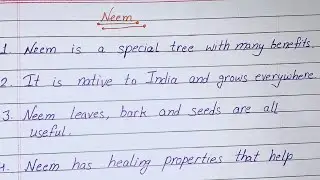 Neem
1. Neem is a special tree with many benefits.
2. It is native to India and grows everywhere.
3. Neem leaves, bark and seeds are all
useful.
4. Neem has healing properties that help